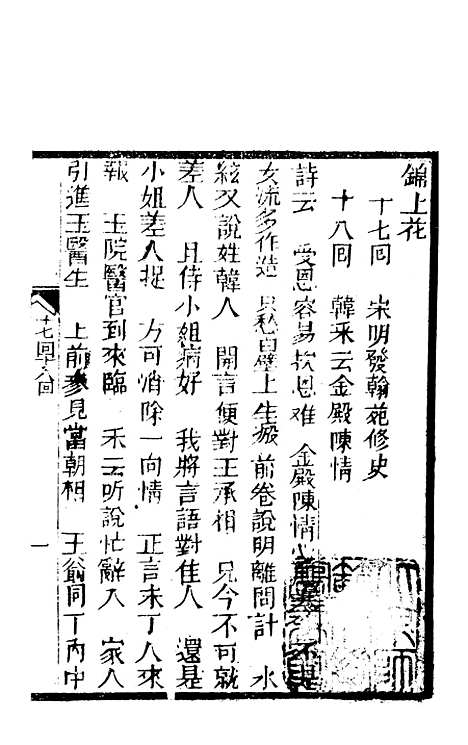 錦上花
十七回 宋明發翰苑修史
十八回 韓采云金殿陳情
詩云 受恩容易放恩难 金殿陳情心
女流多作造 只愁白壁上生瘢 前卷說明離間計 水
絃又說姓韓人 開言便對王承相 兄今不可就
差人 且侍小姐病好 我將言語對佳人 還是
小姐差人捉 方可消除一向情 正言未了人來
報 王院醫官到來臨 禾云听說忙辭入 家人
引進王醫生 上前參見當朝相 王翁同丁丙中
十七回十八回
一